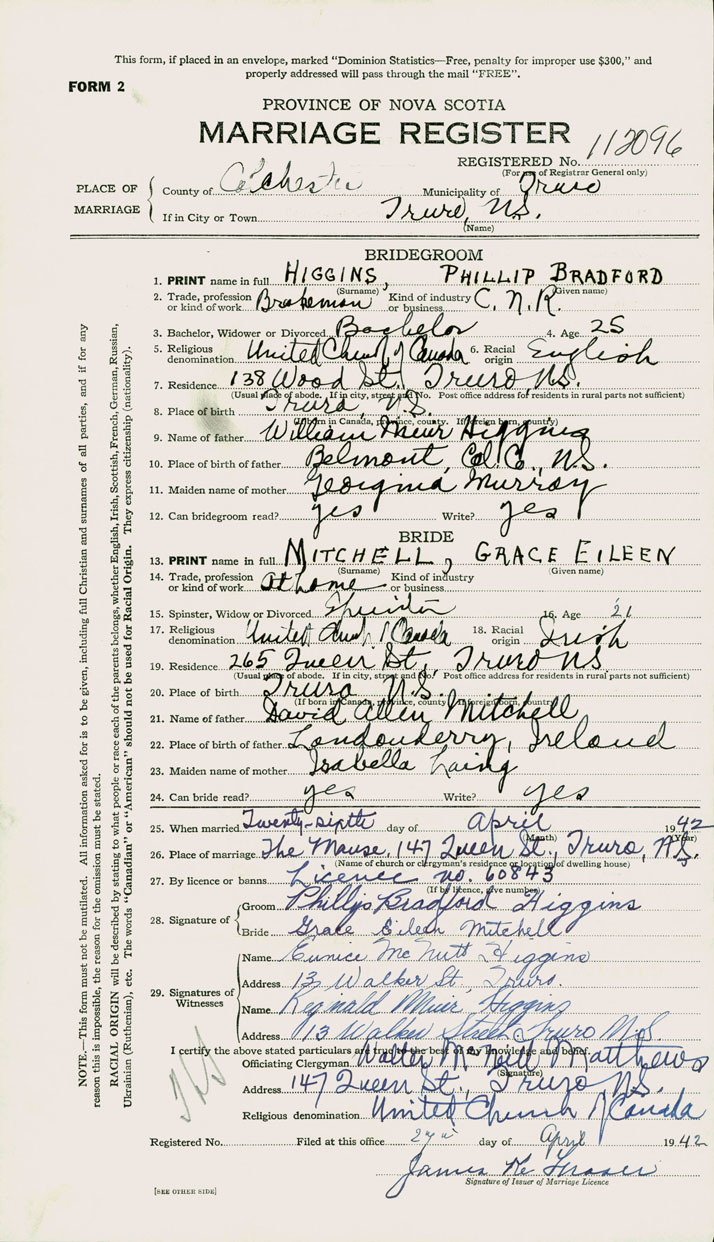 This form, if placed in an envelope, marked "Dominion Statistics—Free, penalty for improper use $300," and
properly addressed will pass through the mail "FREE".
FORM 2
PROVINCE OF NOVA SCOTIA
MARRIAGE REGISTER
REGISTERED No. 112096
(For use of Registrar General only)
PLACE OF MARRIAGE
County of Colchester Municipality of Truro
If in City or Town Truro, N.S.
(Name)
BRIDEGROOM
1. PRINT name in full HIGGINS, PHILLIP BRADFORD
(Surname) (Given name)
2. Trade, profession or kind of work Brakeman Kind of industry or business C.N.R.
3. Bachelor, Widower or Divorced Bachelor 4. Age 25
5. Religious denomination United Church of Canada 6. Racial origin English
7. Residence 138 Wood St., Truro N.S.
(Usual place of abode. If in city, street and No. Post office address for residents in rural parts not sufficient)
8. Place of birth Truro, N.S.
(If born in Canada, province, county. If foreign born, country)
9. Name of father William Muir Higgins
10. Place of birth of father Belmont, Col. Co., N.S.
11. Maiden name of mother Georgina Murray
12. Can bridegroom read? yes Write? yes
BRIDE
13. PRINT name in full MITCHELL, GRACE EILEEN
(Surname) (Given name)
14. Trade, profession or kind of work at home Kind of industry or business
15. Spinster, Widow or Divorced Spinster 16. Age 21
17. Religious denomination United Church of Canada 18. Racial origin Irish
19. Residence 265 Queen St., Truro N.S.
(Usual place of abode. If in city, street and No. Post office address for residents in rural parts not sufficient)
20. Place of birth Truro N.S.
(If born in Canada, province, county. If foreign born, country)
21. Name of father David Allen Mitchell
22. Place of birth of father Londonderry, Ireland
23. Maiden name of mother Isabella Laing
24. Can bride read? yes Write? yes
25. When married Twenty-sixth day of April 1942
(Month) (Year)
26. Place of marriage The Manse, 147 Queen St., Truro, N.S.
(Name of church or clergyman's residence or location of dwelling house)
27. By licence or banns Licence no. 60843
(If by licence, give number)
28. Signature of
Groom Phillip Bradford Higgins
Bride Grace Eileen Mitchell
29. Signatures of Witnesses
Name Eunice McNutt Higgins
Address 13 Walker St. Truro.
Name Reginald Muir Higgins
Address 13 Walker Street Truro N.S.
I certify the above stated particulars are true to the best of my knowledge and belief
Officiating Clergyman Walter McNeill Matthews
(Signature)
Address 147 Queen St., Truro N.S.
Religious denomination United Church of Canada
Registered No. Filed at this office day of April 1942
James
Signature of Issuer of Marriage Licence
[SEE OTHER SIDE]
NOTE.—This form must not be mutilated. All information asked for is to be given, including full Christian and surnames of all parties, and if for any
reason this is impossible, the reason for the omission must be stated.
RACIAL ORIGIN will be described by stating to what people or race each of the parents belongs, whether English, Irish, Scottish, French, German, Russian,
Ukrainian (Ruthenian), etc. The words "Canadian" or "American" should not be used for Racial Origin. They express citizenship (nationality).